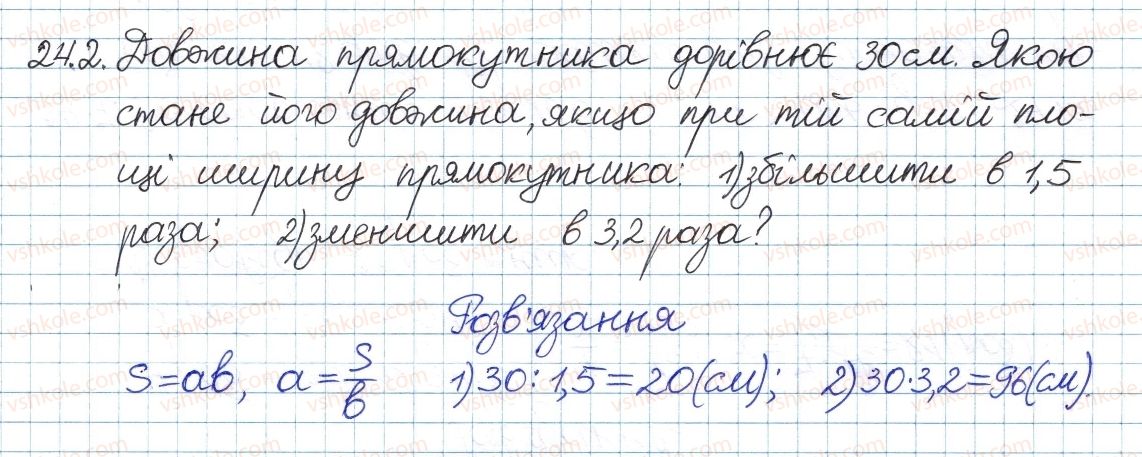 24.2. Довжина прямокутника дорівнює 30 см. Якою
стане його довжина, якщо при тій самій пло-
щі ширину прямокутника: 1) збільшити в 1,5
раза; 2) зменшити в 3,2 раза?
Розв'язання
S = aв, a = S/в 1) 30 : 1,5 = 20 (см); 2) 30 · 3,2 = 96 (см).
vshkole.com